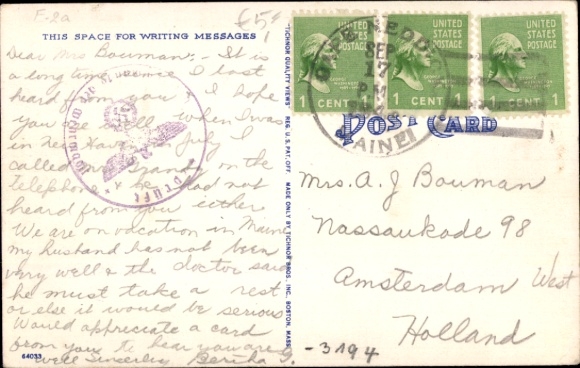 F-2a
£5
THIS SPACE FOR WRITING MESSAGES
Dear Mrs Bouman: - It is
a long time since I last
heard from you. I hope
you are well. When I was
in New Haven in July I
called Mrs on the
telephone & she had not
heard from you either
We are on vacation in Maine
my husband has not been
very well & the doctor said
he must take a rest
or else it would be serious
Would appreciate a card
from you to hear you are
well Sincerely Bertha G.
64033
TICHNOR QUALITY VIEWS REG. U. S. PAT. OFF. MADE ONLY BY TICHNOR BROS. INC. BOSTON, MASS.
UNITED STATES POSTAGE
1 CENT 1
UNITED STATES POSTAGE
1 CENT 1
UNITED STATES POSTAGE
1 CENT 1
SEP
17
MAINE
POST CARD
Mrs. A. J Bouman
Nassaukade 98
Amsterdam West
Holland
-3194